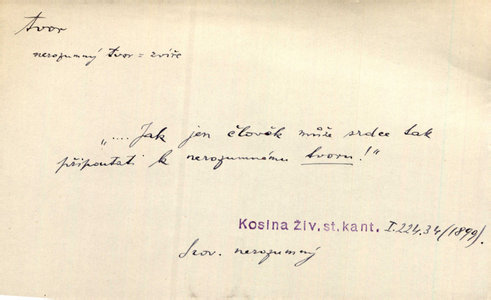 tvor
nerozumný tvor = zvíře
„.... Jak jen člověk může srdce tak
připoutati k nerozumnému tvoru!"
Kosina Živ. st. kant. I.224.34/(1899).
Srov. nerozumný